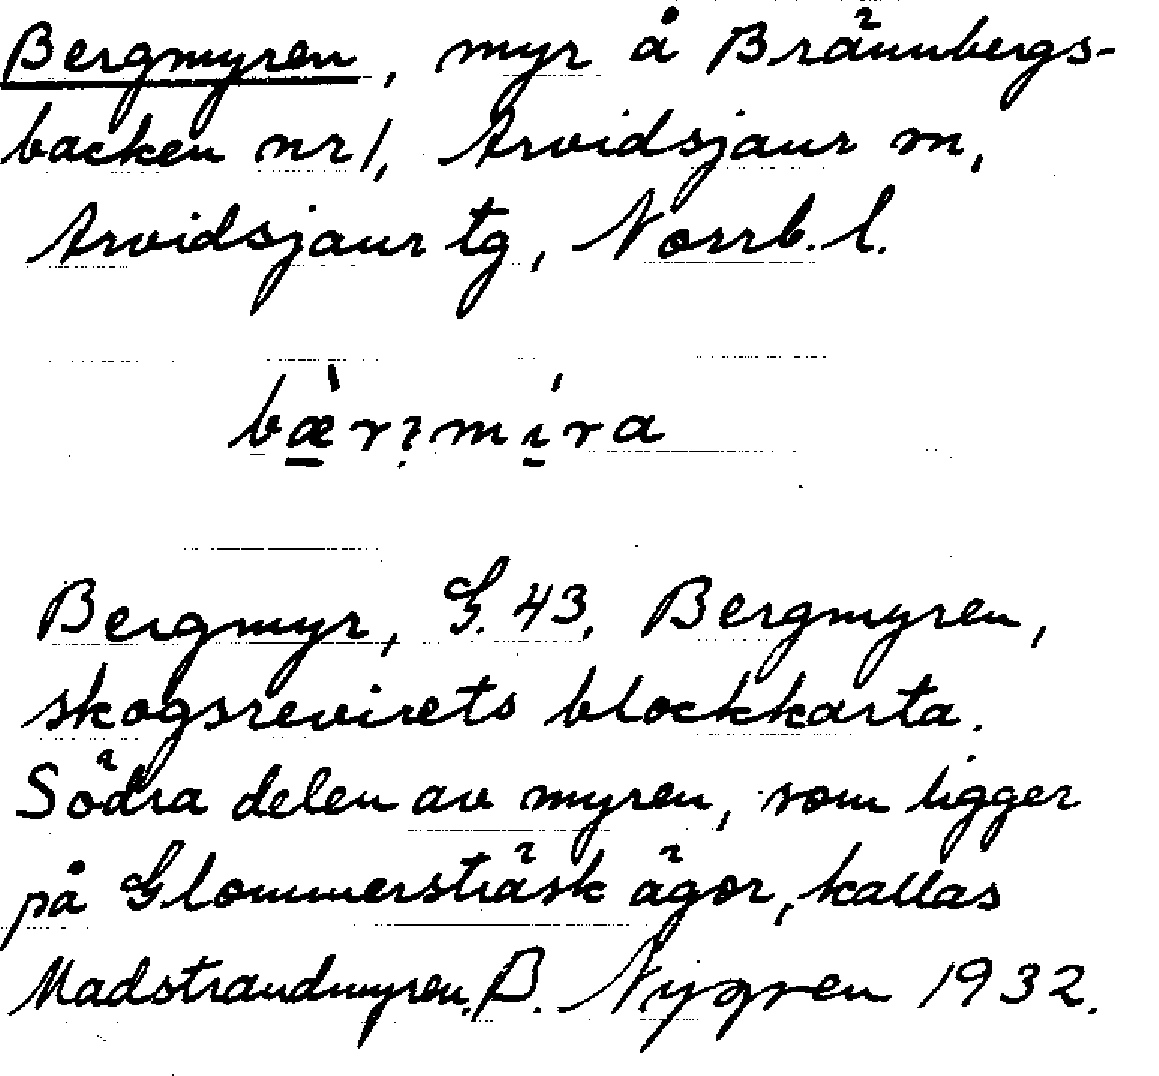 Bergmyren, myr å Brännbergs-
backen nr 1, Arvidsjaur m,
Arvidsjaur tg, Norrb. l.
bæ̀rɂmíra
Bergmyr, G. 43, Bergmyren,
skogsrevirets blockkarta.
Södra delen av myren, som ligger
på Glommersträsk ägor, kallas
Madstrandmyren. B. Nygren 1932.